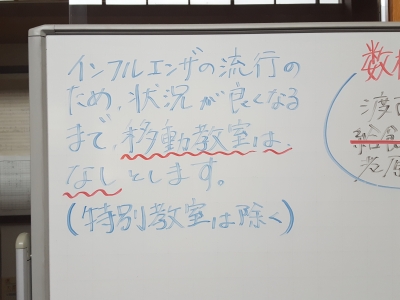 インフルエンザの流行の
ため、状況が良くなる
まで、移動教室は、
なしとします。
(特別教室は除く)
数
渡
給食